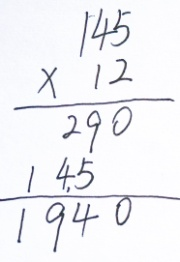 145
× 12
290
145
1940